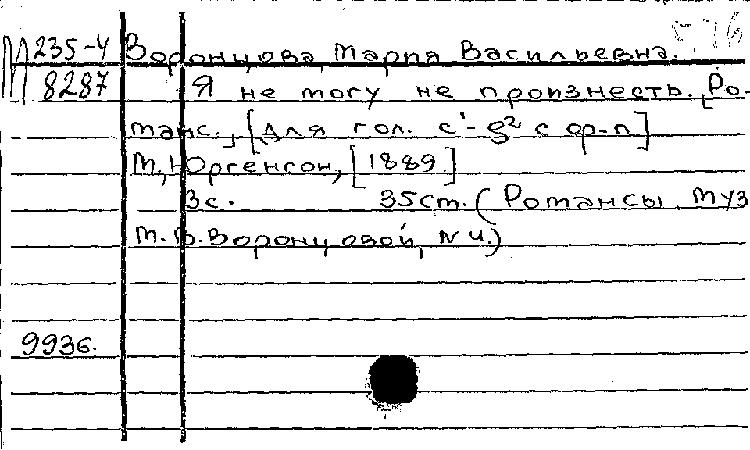 М 235-4 Воронцова, Мария Васильевна.
8287 Я не могу не произнесть. [Ро-
манс., [Для гол. c¹-g² с ф-п]
М, Юргенсон, [1889]
3с. 35см. (Романсы муз
М. В. Воронцовой, № 4.)
9936.